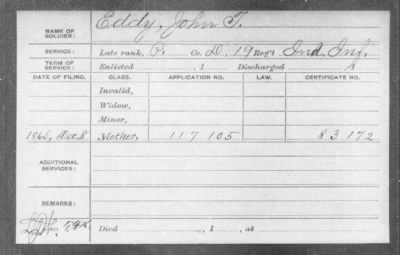 NAME OF SOLDIER: Eddy, John T.
SERVICE: Late rank, P. Co. D, 19 Reg't Ind. Inf.
TERM OF SERVICE: Enlisted , 1 Discharged , 1
DATE OF FILING. CLASS. APPLICATION NO. LAW. CERTIFICATE NO.
Invalid,
Widow,
Minor,
1865, Dec. 8. Mother, 117 105 83 172
ADDITIONAL SERVICES:
REMARKS:
Died , 1 , at